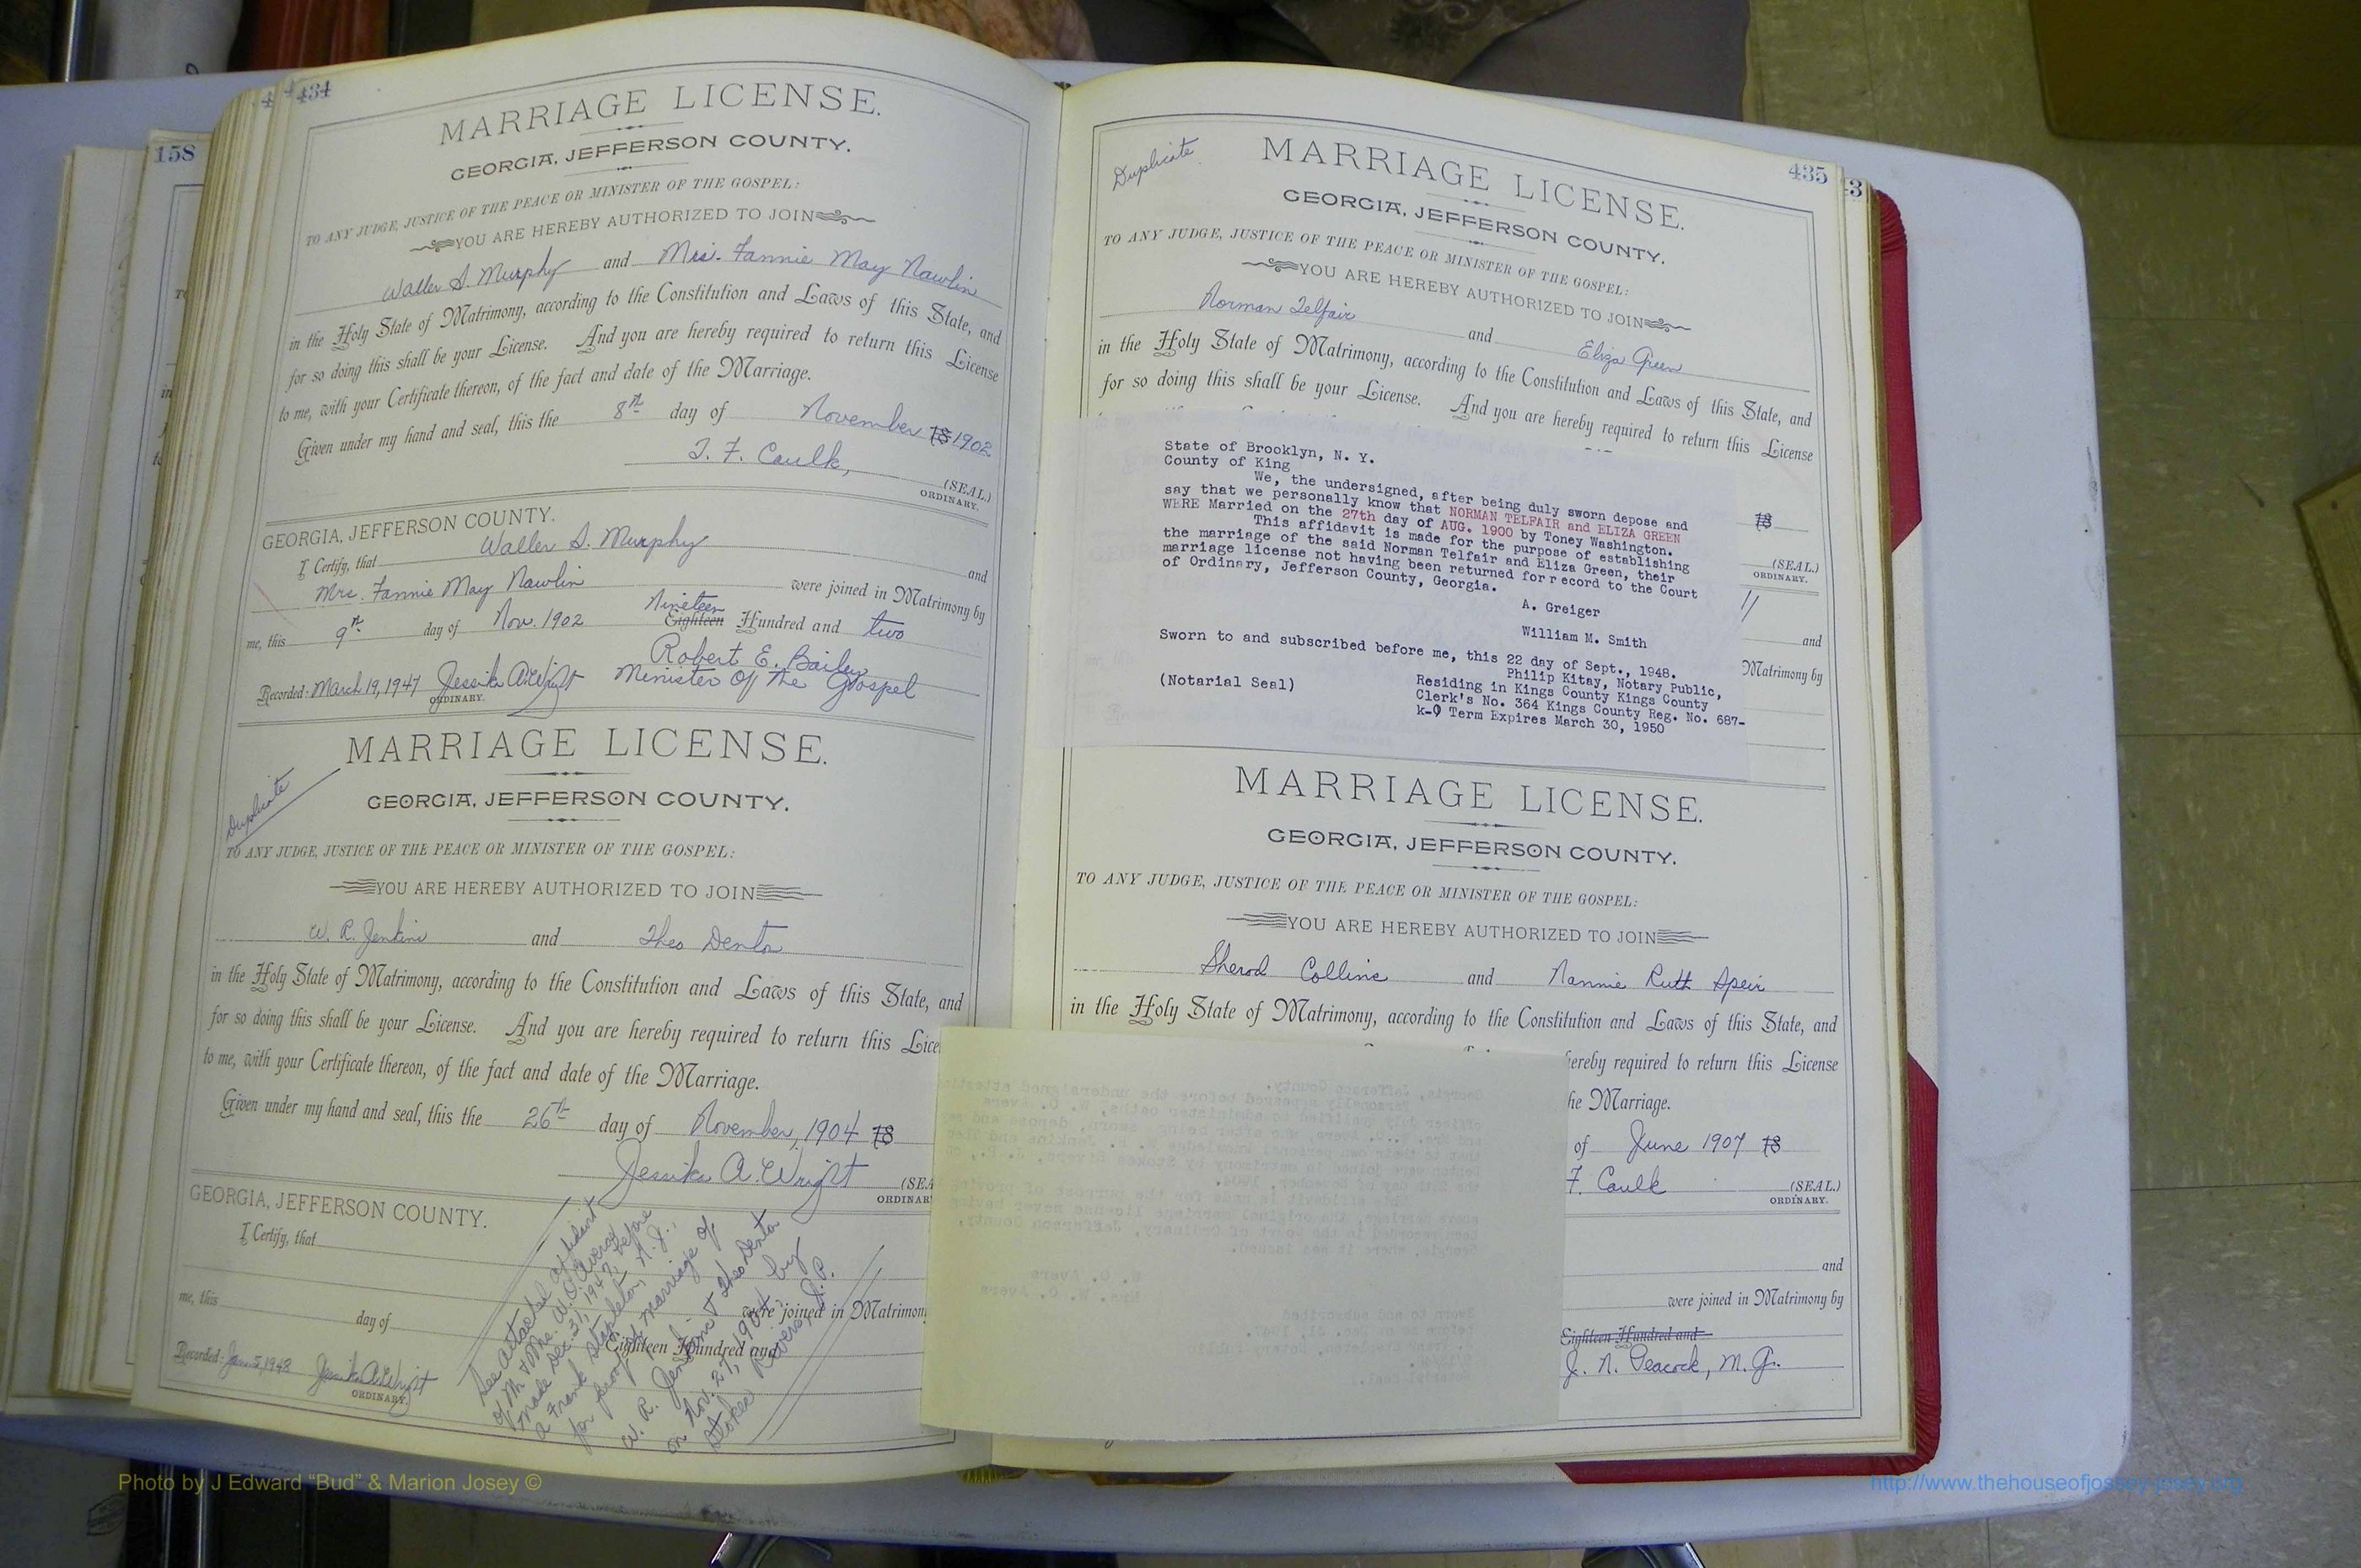 434
158
MARRIAGE LICENSE.
GEORGIA, JEFFERSON COUNTY.
TO ANY JUDGE, JUSTICE OF THE PEACE OR MINISTER OF THE GOSPEL:
YOU ARE HEREBY AUTHORIZED TO JOIN
Waller S. Murphy and Mrs. Fannie May Nawlin
in the Holy State of Matrimony, according to the Constitution and Laws of this State, and
for so doing this shall be your License. And you are hereby required to return this License
to me, with your Certificate thereon, of the fact and date of the Marriage.
Given under my hand and seal, this the 8th day of November 18 1902
T. F. Caulk, (SEAL.)
ORDINARY.
GEORGIA, JEFFERSON COUNTY.
I Certify, that Waller S. Murphy and
Mrs. Fannie May Nawlin were joined in Matrimony by
me, this 9th day of Nov. 1902 Nineteen Eighteen Hundred and two
Robert E. Bailey
Recorded: March 19, 1947 Jessika A. Wright Minister Of The Gospel
ORDINARY.
MARRIAGE LICENSE.
Duplicate
GEORGIA, JEFFERSON COUNTY.
TO ANY JUDGE, JUSTICE OF THE PEACE OR MINISTER OF THE GOSPEL:
YOU ARE HEREBY AUTHORIZED TO JOIN
W. R. Jenkins and Theo Denton
in the Holy State of Matrimony, according to the Constitution and Laws of this State, and
for so doing this shall be your License. And you are hereby required to return this Lice
to me, with your Certificate thereon, of the fact and date of the Marriage.
Given under my hand and seal, this the 26th day of November, 1904 18
Jessika A. Wright (SEA
ORDINAR
GEORGIA, JEFFERSON COUNTY.
I Certify, that
were joined in Matrimon
me, this day of Eighteen Hundred and
Recorded: Jan. 5, 1948 Jessika A. Wright
ORDINARY.
See attached affidavit
of Mr. & Mrs. W. O. Avera
made Dec. 31, 1947, before
a Frank Stapleton, N. J.,
for proof of marriage of
W. R. Jenkins & Theo Denton
on Nov. 27, 1904 by
Stokes Rivers J. P.
435
Duplicate
MARRIAGE LICENSE.
GEORGIA, JEFFERSON COUNTY.
TO ANY JUDGE, JUSTICE OF THE PEACE OR MINISTER OF THE GOSPEL:
YOU ARE HEREBY AUTHORIZED TO JOIN
Norman Telfair and Eliza Green
in the Holy State of Matrimony, according to the Constitution and Laws of this State, and
for so doing this shall be your License. And you are hereby required to return this License
State of Brooklyn, N. Y.
County of King
We, the undersigned, after being duly sworn depose and
say that we personally know that NORMAN TELFAIR and ELIZA GREEN
WERE Married on the 27th day of AUG. 1900 by Toney Washington.
This affidavit is made for the purpose of establishing
the marriage of the said Norman Telfair and Eliza Green, their
marriage license not having been returned for record to the Court
of Ordinary, Jefferson County, Georgia.
A. Greiger
William M. Smith
Sworn to and subscribed before me, this 22 day of Sept., 1948.
Philip Kitay, Notary Public,
(Notarial Seal) Residing in Kings County Kings County
Clerk's No. 364 Kings County Reg. No. 687-
k-9 Term Expires March 30, 1950
18
(SEAL.)
ORDINARY.
and
Matrimony by
MARRIAGE LICENSE.
GEORGIA, JEFFERSON COUNTY.
TO ANY JUDGE, JUSTICE OF THE PEACE OR MINISTER OF THE GOSPEL:
YOU ARE HEREBY AUTHORIZED TO JOIN
Sherod Colline and Nannie Ruth Speir
in the Holy State of Matrimony, according to the Constitution and Laws of this State, and
hereby required to return this License
he Marriage.
of June 1907 18
F. Caulk (SEAL.)
ORDINARY.
and
were joined in Matrimony by
Eighteen Hundred and
J. N. Peacock, M. G.
Photo by J Edward “Bud” & Marion Josey ©
http://www.thehouseofjossey-josey.org